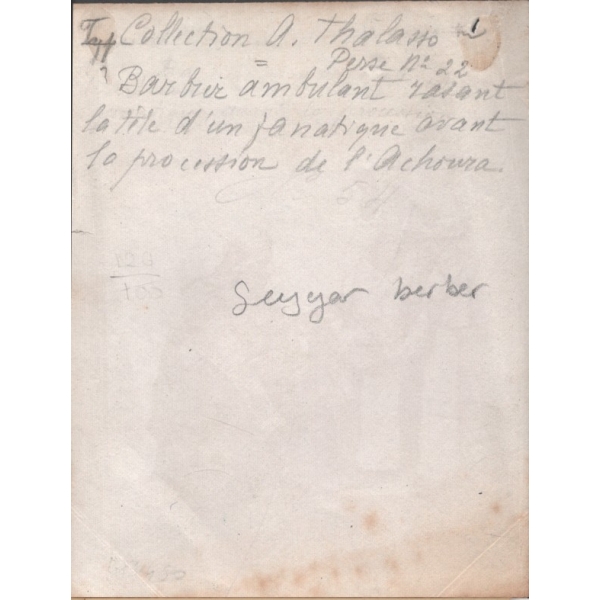 Collection A. Thalasso
Perse No 22
Barbier ambulant rasant
la tête d'un fanatique avant
la procession de l'Achoura.
54
Seyyar berber